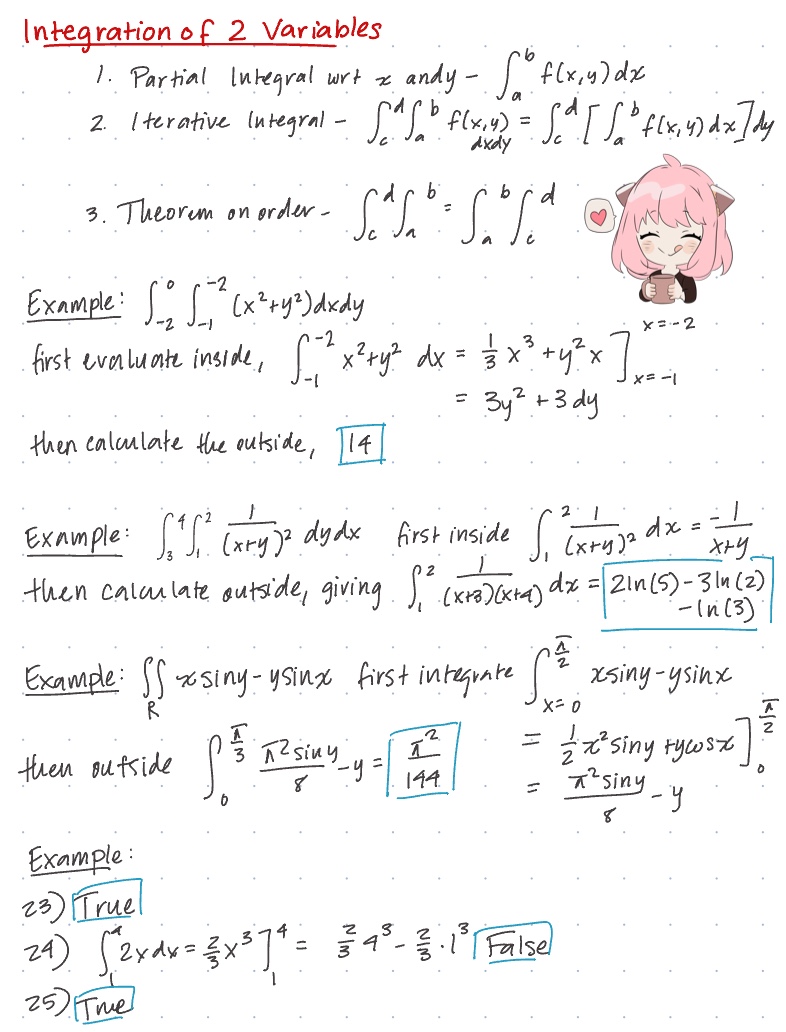 Integration of 2 Variables
1. Partial Integral wrt x and y – ∫_a^b f(x,y) dx
2. Iterative Integral – ∫_c^d ∫_a^b f(x,y) dxdy = ∫_c^d [ ∫_a^b f(x,y) dx ] dy
3. Theorem on order – ∫_c^d ∫_a^b = ∫_a^b ∫_c^d
Example: ∫_{-2}^0 ∫_{-1}^{-2} (x²+y²) dxdy
first evaluate inside, ∫_{-1}^{-2} x²+y² dx = 1/3 x³ + y²x ]_{x=-1}^{x=-2}
= 3y² + 3 dy
then calculate the outside, 14
Example: ∫_3^4 ∫_1^2 1/(x+y)² dydx first inside ∫_1^2 1/(x+y)² dx = -1/(x+y)
then calculate outside, giving ∫_1^2 1/((x+3)(x+4)) dx = 2ln(5) – 3ln(2) – ln(3)
Example: ∬_R xsiny – ysinx first integrate ∫_{x=0}^{π/2} xsiny – ysinx
= 1/2 x² siny + ycosx ]_0^{π/2}
then outside ∫_0^{π/3} π²siny/8 – y = π²/144
= π²siny/8 – y
Example:
23) True
24) ∫_1^4 2x dx = 2/3 x³ ]_1^4 = 2/3 4³ – 2/3 · 1³ False
25) True